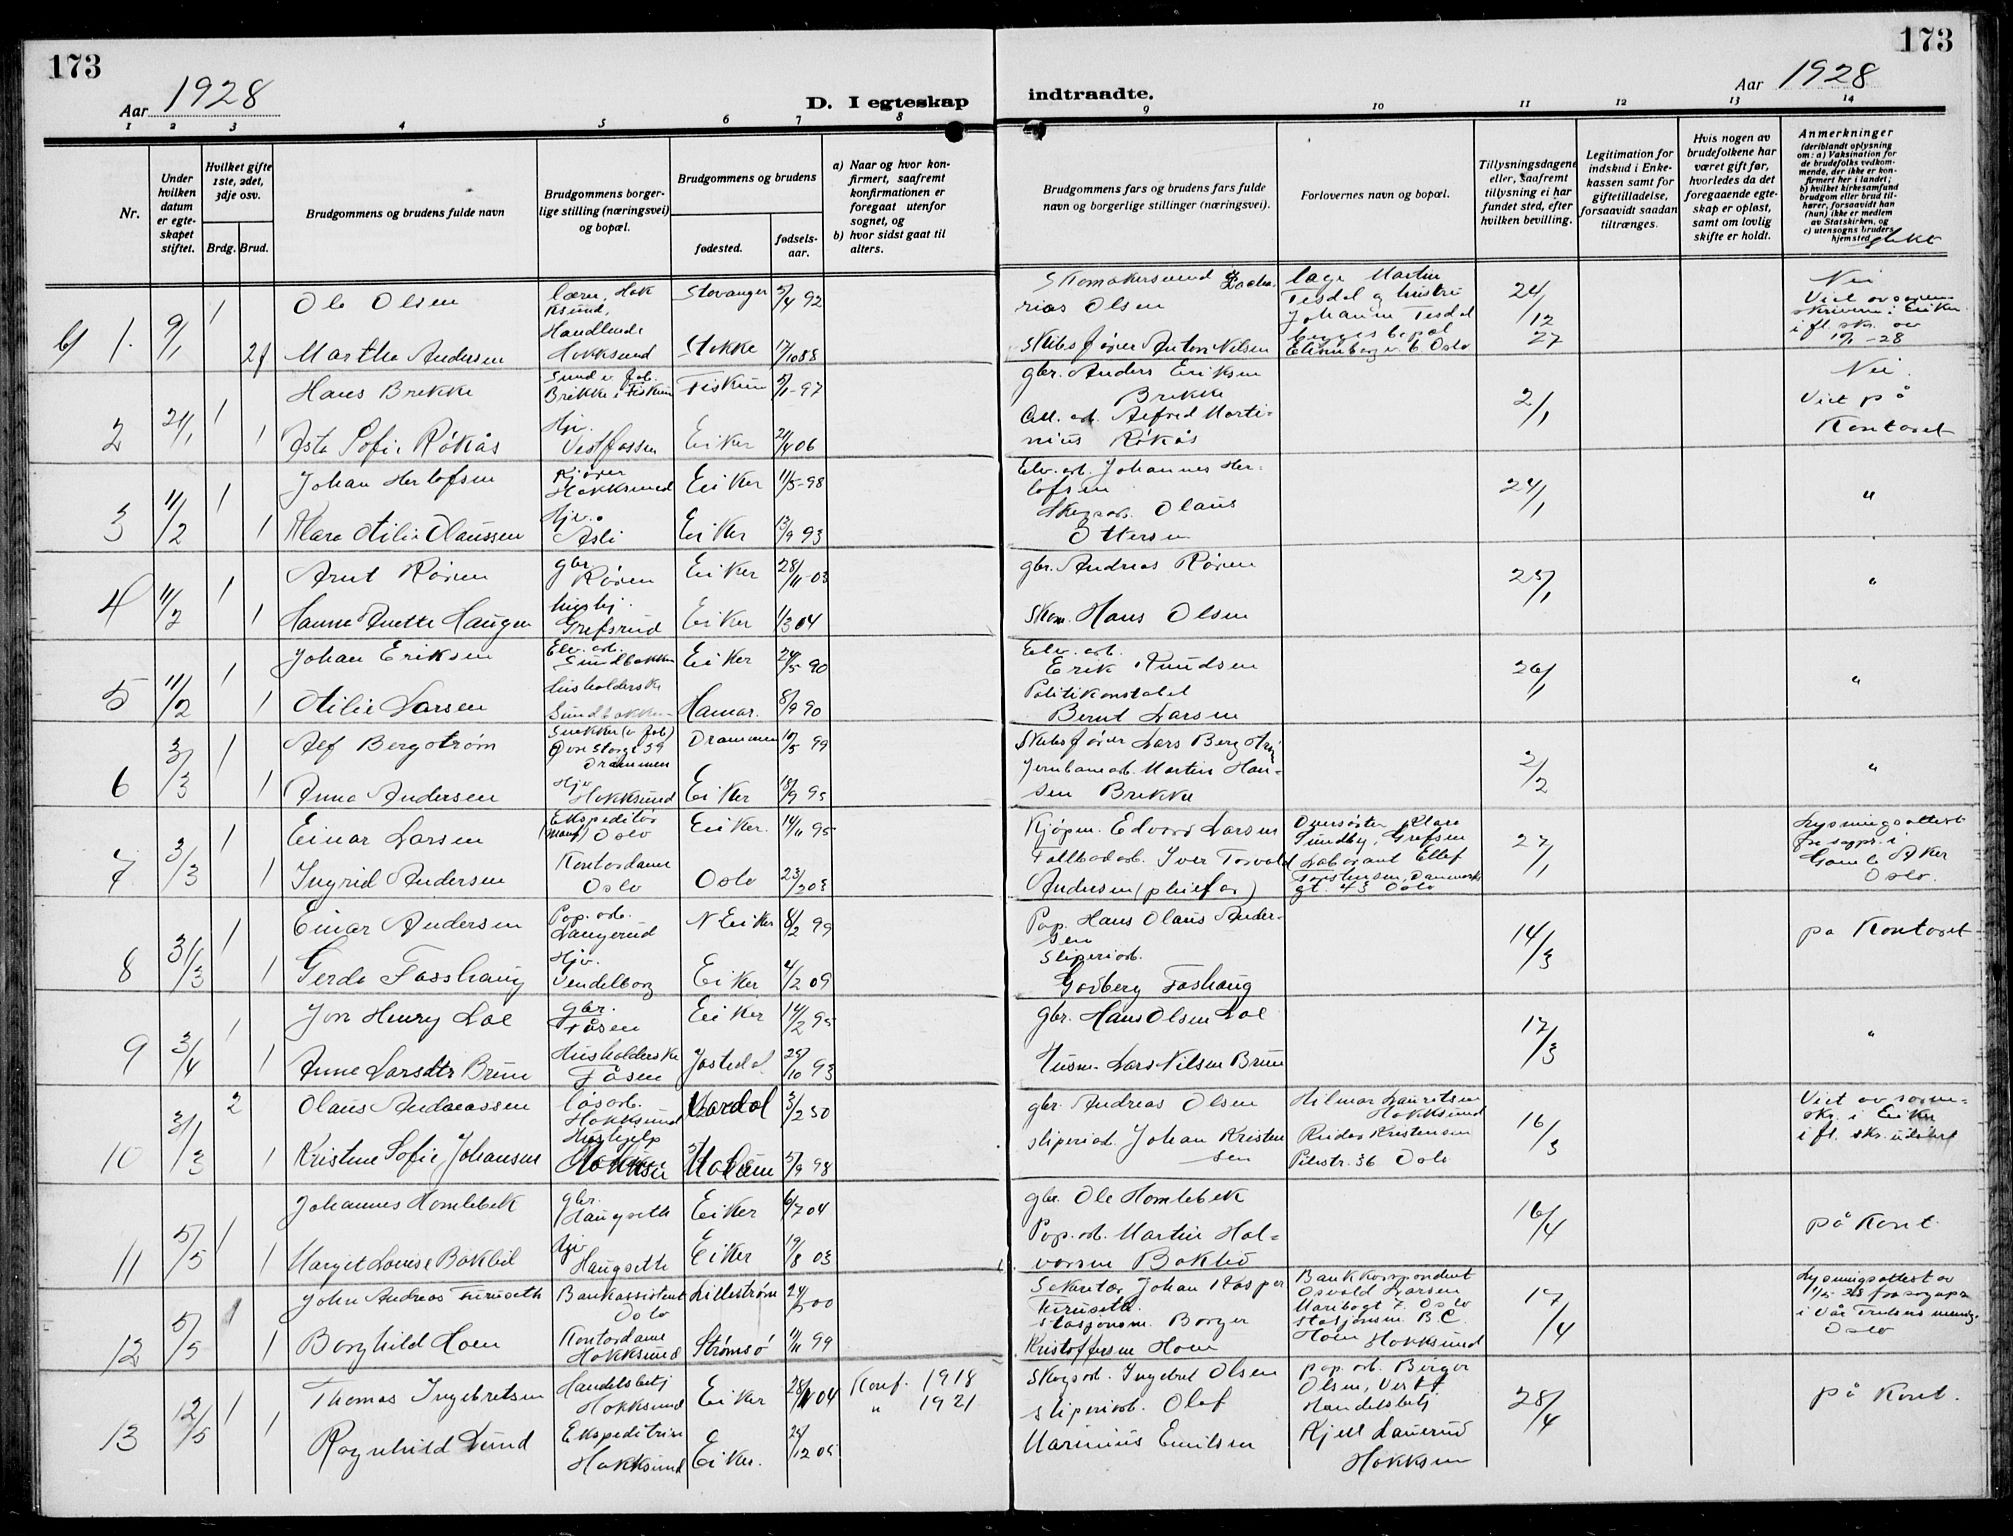 173
173
Aar 1928
D. I egteskap
indtraadte.
Aar 1928
1 2 3 4 5 6 7 8 9 10 11 12 13 14
Nr.
Under hvilken datum er egteskapet stiftet.
Hvilket gifte 1ste, 2det, 3dje osv.
Brdg. Brud.
Brudgommens og brudens fulde navn
Brudgommens borgerlige stilling (næringsvei) og bopæl.
Brudgommens og brudens
fødested.
fødselsaar.
a) Naar og hvor konfirmert, saafremt konfirmationen er foregaat utenfor sognet, og
b) hvor sidst gaat til alters.
Brudgommens fars og brudens fars fulde navn og borgerlige stillinger (næringsvei).
Forlovernes navn og bopæl.
Tillysningsdagene eller, saafremt tillysning ei har fundet sted, efter hvilken bevilling.
Legitimation for indskud i Enkekassen samt for giftetilladelse, forsaavidt saadan tiltrænges.
Hvis nogen av brudefolkene har været gift før, hvorledes da det foregaaende egteskap er opløst, samt om lovlig skifte er holdt.
Anmerkninger (deriblandt oplysning om: a) Vaksination for de brudefolks vedkommende, der ikke er konfirmert her i landet; b) hvilket kirkesamfund brudgom eller brud tilhører, forsaavidt han (hun) ikke er medlem av Statskirken, og c) utensogns bruders hjemsted
1. 9/1 1 Ole Olsen Hokksund, Stavanger 5/4 92 Olsen 24/12 27 Nei
Martha Andersen Handlende Hokksund Stokke 88 Skibsfører Anton Nilsen Oslo
2 21/1 1 Hans Brekke Brekke i Fiskum Fiskum 97 gbr. Anders Eriksen Brekke 2/1 Nei. Viet på Kontoret
1 Asta Sofie Røkås Hjv. Vestfossen Eiker 06 Alfred Martinius Røkås
3 11/2 1 Johan Herlofsen Hokksund Eiker 11/5-98 Elv.arb. Johannes Herlofsen 24/1 "
1 Klara Otilie Olaussen Hjv. Asli Eiker 13/9 93 Olaus Ottersen
4 11/2 1 Arnt Røren gbr. Røren Eiker 28/11-03 gbr. Andreas Røren 25/1 "
1 Hanna Anette Haugen hushj. Grefsrud Eiker 1/3 04 Skom. Hans Olsen
5 11/2 1 Johan Eriksen Elv.arb. Sundbakken Eiker 90 Elv.arb. Erik Knudsen 26/1 "
1 Otilie Larsen Husholderske Sundbakken Hamar. 8/9 90 Politikonstabel Bernt Larsen
6 3/3 1 Alf Bergstrøm Drammen Drammen 10/5 99 Skibsfører Lars Bergstrøm 2/2 "
1 Anna Andersen Hjv Hokksund Eiker 18/9 95 Jernbanearb. Martin Hansen Brekke
7 3/3 1 Einar Larsen Ekspeditør (Manuf) Oslo Eiker. 14/11 95 Kjøpm. Edvard Larsen Grefsen 27/1 Lysningsattest fra sogpr. i Gamle Aker Oslo.
1 Ingrid Andersen Kontordame Oslo Oslo 23/2 03 Iver Torvald Andersen (pleiefar) Laborant gt. 43 Oslo
8 31/3 1 Einar Andersen Pap.arb. Langerud N Eiker 8/2 99 Pap. Hans Olaus Andersen 14/3 på Kontoret
1 Gerda Fosshaug Hjv. Vendelborg Eiker 4/2 09 Sliperiarb. Godberg Foshaug
9 3/4 1 Jon Henry Loe gbr. Tåsen Eiker 14/2 95 gbr. Hans Olsen Loe 17/3 "
1 Anne Larsdtr Brun Husholderske Tåsen Jostedal 25/10 93 Husm. Lars Nilsen Brun
10 31/3 2 Olaus Andreassen løsarb. Hokksund Vardal 3/2 50 gbr. Andreas Olsen Hilmar Lauritsen Hokksund 16/3 Viet av sorenskr. i Eiker i fl. skr. utskrift
1 Kristine Sofie Johansen Hushjelp Modum 5/9 98 sliperiarb. Johan Kristensen Reidar Kristensen Pilestr. 36 Oslo
11 5/5 1 Johannes Homlebek gbr. Haugseth Eiker 6/7 04 gbr. Ole Homlebek 16/4 på Kont.
1 Margit Louise Bakbel Hjv Haugseth Eiker 03 Pap.arb. Martin Halvorsen
12 5/5 1 John Andreas Furuseth Bankassistent Oslo Lillestrøm 00 Johan Kasper Furuseth. Bankkorrespondent Osvald Larsen Maribogt 7. Oslo 17/4 Lysningsattest av Vår Frelsers menig. Oslo
1 Borghild Hoen Kontordame Hokksund Strømsø 11/11 99 Stasjonsm. Borger Kristoffersen Hoen Stasjonsm. B.C. Hoen Hokksund
13 12/5 1 Thomas Ingebretsen Handelsbetj Hokksund Eiker 04 Konf. 1918 Skogsarb. Ingebret Olsen pap.arb. Birger Olsen, Vestf 28/4 på Kont.
1 Ragnhild Lund Ekspeditrise Hokksund Eiker. 05 " 1921 sliperiarb. Olaf Marinius Emilsen Handelsbetj Kjell Hokksun